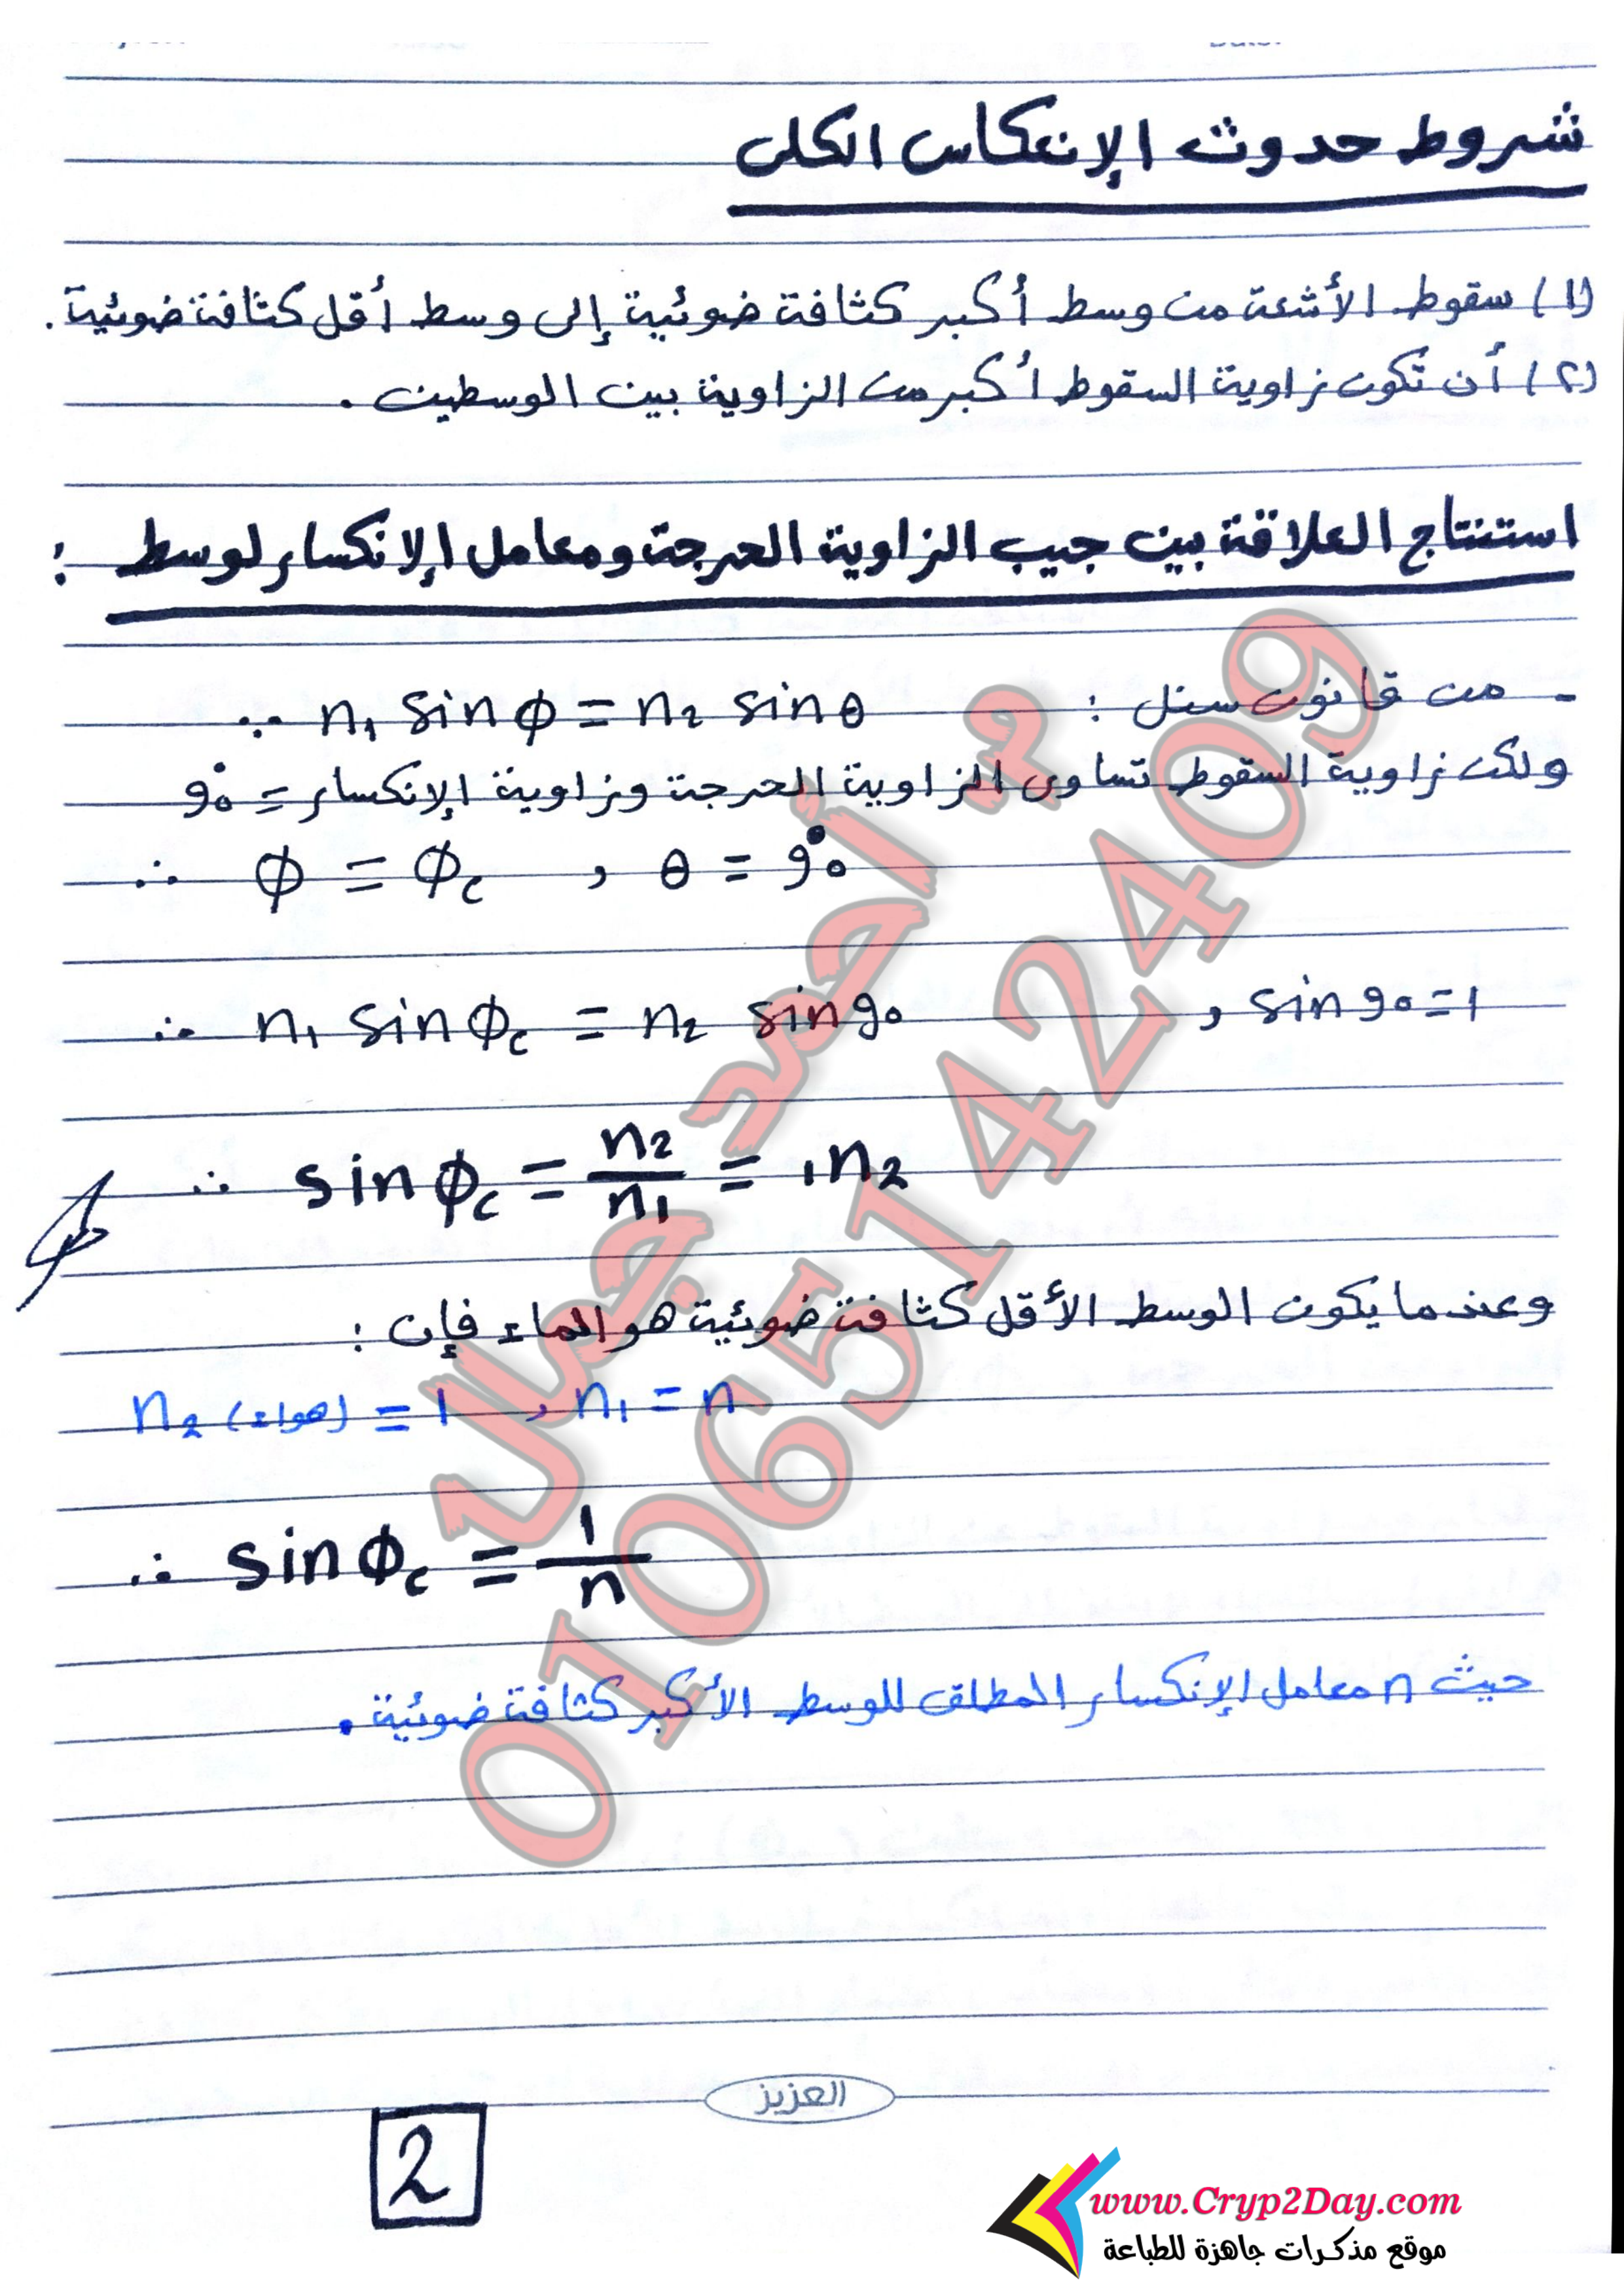 شروط حدوث الإنعكاس الكلى
(١) سقوط الأشعة من وسط أكبر كثافة ضوئية إلى وسط أقل كثافة ضوئية.
(٢) أن تكون زاوية السقوط أكبر من الزاوية بين الوسطين.
استنتاج العلاقة بين جيب الزاوية الحرجة ومعامل الإنكسار لوسط :
- من قانون سنل : ∵ n₁ sin ϕ = n₂ sin θ
ولكن زاوية السقوط تساوى الزاوية الحرجة وزاوية الإنكسار = 90°
∴ ϕ = ϕc , θ = 90°
∴ n₁ sin ϕc = n₂ sin 90 , sin 90 = 1
∴ sin ϕc = n₂/n₁ = ₁n₂
وعندما يكون الوسط الأقل كثافة ضوئية هو الماء فإن :
n₂ (هواء) = 1 , n₁ = n
∴ sin ϕc = 1/n
حيث n معامل الإنكسار المطلق للوسط الأكبر كثافة ضوئية.
م. أحمد جمال
01065142409
العزيز
2
www.Cryp2Day.com
موقع مذكرات جاهزة للطباعة